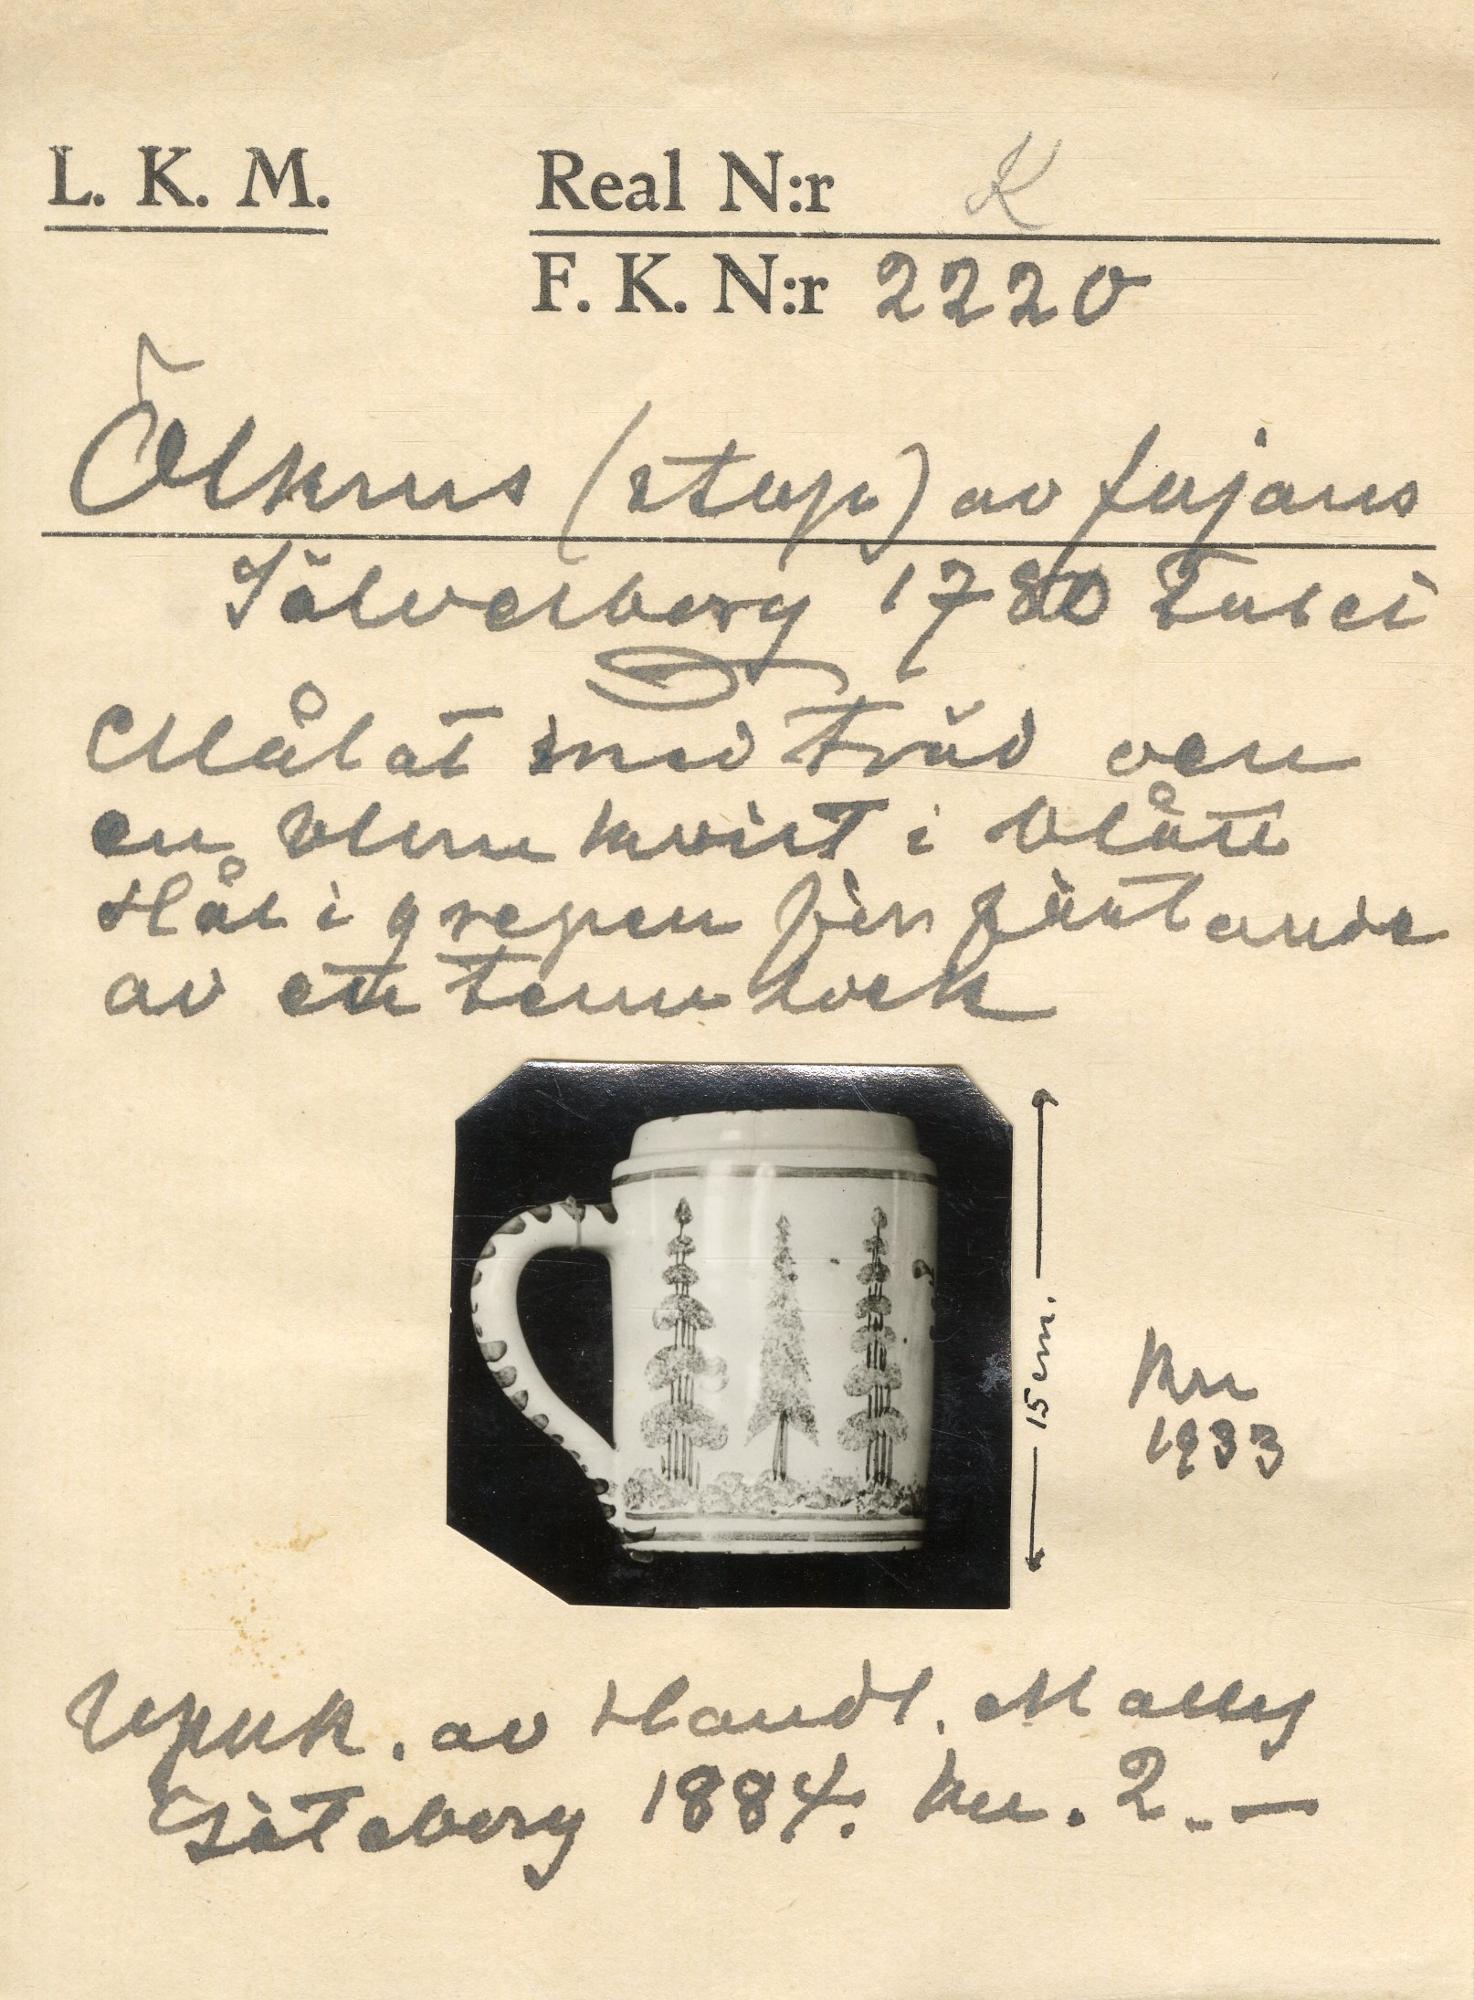 L. K. M.
Real N:r K
F. K. N:r 2220
Ölkrus (stop) av fajans
Sölvesborg 1780 talet
Målat med träd oen
en blomkvist i blått
Hål i grepen för fästande
av ett tennlock
15 cm.
Kru
1933
Uppk. av Handl. Mally
Göteborg 1884. kr. 2.–